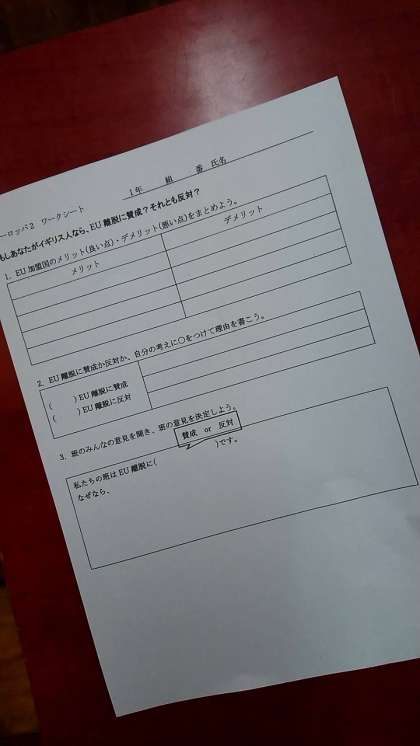 1年　　組　　番 氏名
ーロッパ２　ワークシート
もしあなたがイギリス人なら、EU離脱に賛成？それとも反対？
1．EU加盟国のメリット(良い点)・デメリット(悪い点)をまとめよう。
メリット　デメリット
2．EU離脱に賛成か反対か、自分の考えに○をつけて理由を書こう。
(　　)EU離脱に賛成
(　　)EU離脱に反対
3．班のみんなの意見を聞き、班の意見を決定しよう。
賛成　or　反対
私たちの班はEU離脱に(　　　　　)です。
なぜなら、